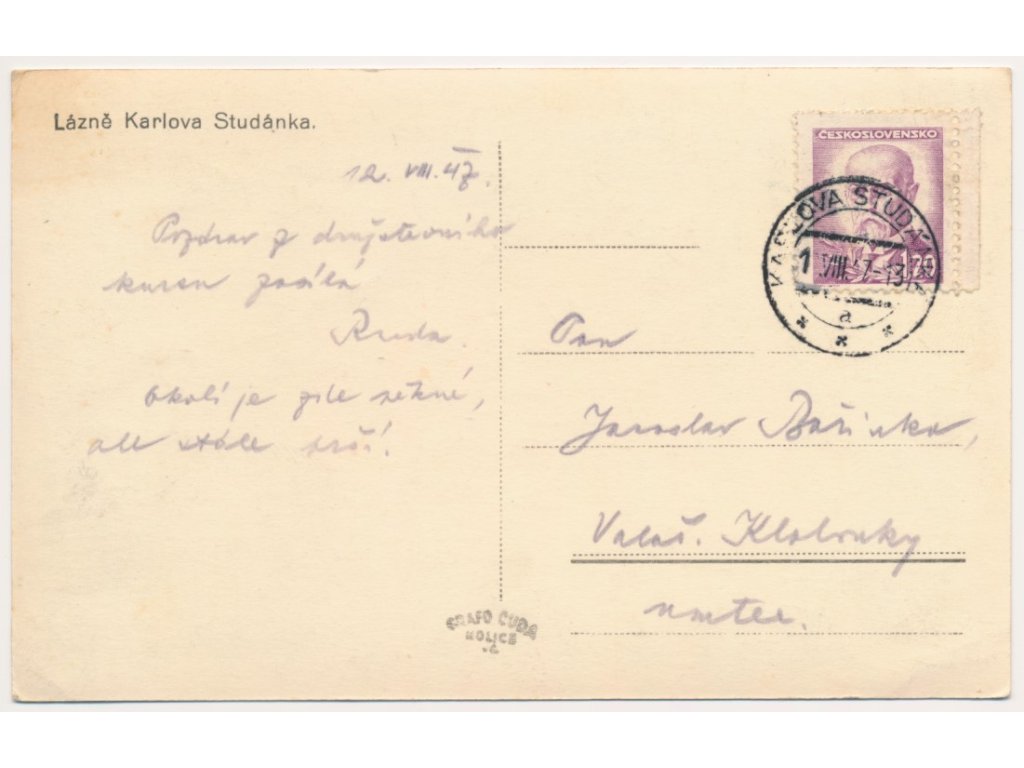 Lázně Karlova Studánka.
12. VIII. 47.
Pozdrav z družstevního
kursu posílá
Ruda.
Okolí je zde pěkné,
ale stále prší!
ČESKOSLOVENSKO
1.20
KARLOVA STUDÁNKA
VIII. 47-13
a
Pan
Jaroslav
Valaš. Klobouky
GRAFO ČUDA
HOLICE